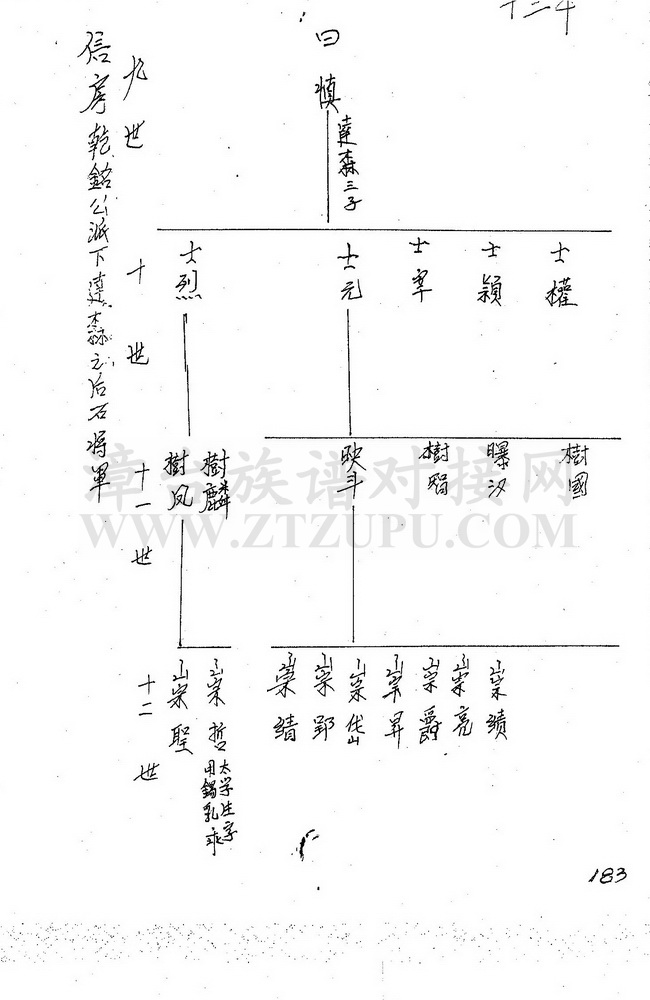 信房乾銘公派下達森之后石将軍
九世
曰慎
達森三子
十世
士權
士穎
士宰
士元
士烈
十一世
樹國
曝汉
映斗
樹麟
樹凤
十二世
崇績
崇亮
崇爵
崇岱
崇郢
崇哲
太学生字
用錫乳
崇聖
漳台族谱对接网
WWW.ZTZUPU.COM
183